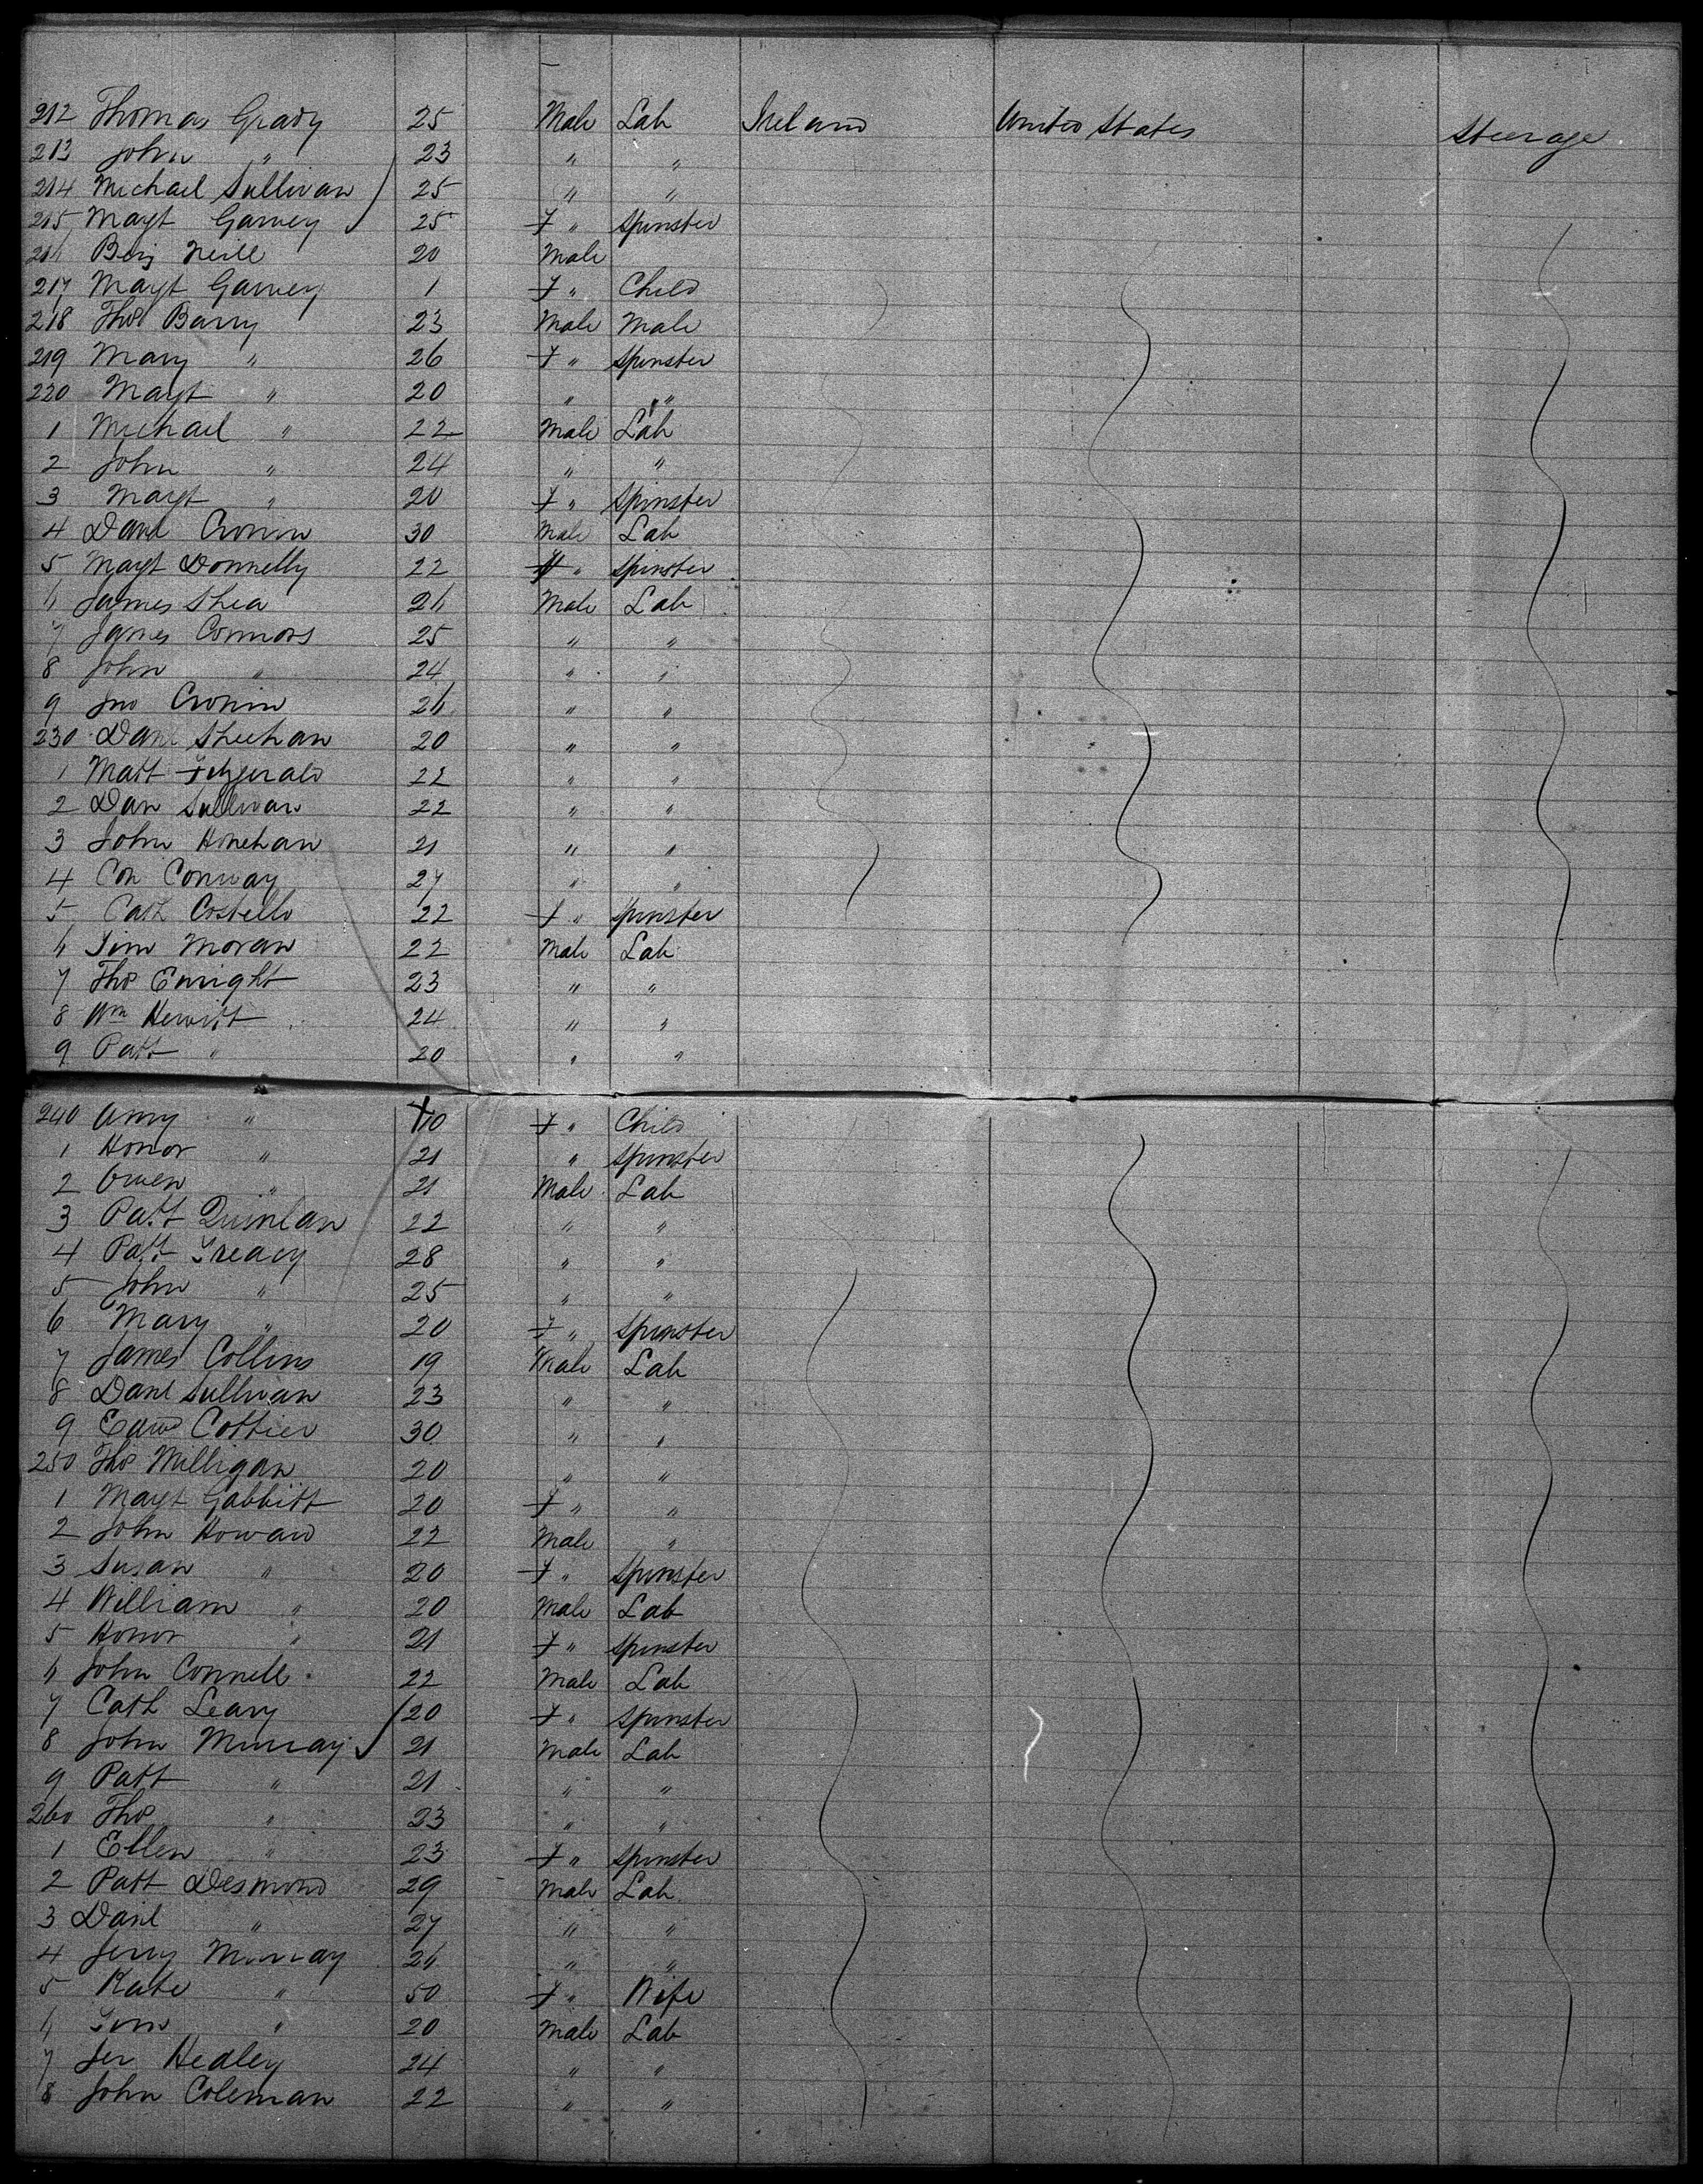 212 Thomas Grady 25 Male Lab Ireland United States Steerage
213 John " 23 " "
214 Michael Sullivan 25 " "
215 Margt Garvey 25 F " Spinster
216 Benj Neill 20 Male
217 Margt Garvey 1 F " Child
218 Thos Barry 23 Male Male
219 Mary " 26 F " Spinster
220 Margt " 20 " "
1 Michael " 22 Male Lab
2 John " 24 " "
3 Margt " 20 F " Spinster
4 Danl Cronin 30 Male Lab
5 Margt Donnelly 22 F " Spinster
6 James Shea 26 Male Lab
7 James Connors 25 " "
8 John " 24 " "
9 Jno Cronin 26 " "
230 Danl Sheehan 20 " "
1 Matt Fitzgerald 22 " "
2 Dan Sullivan 22 " "
3 John Honehan 21 " "
4 Con Conway 27 " "
5 Cath Costello 22 F " Spinster
6 Tim Moran 22 Male Lab
7 Thos Enright 23 " "
8 Wm Hewitt 24 " "
9 Patt " 20 " "
240 Amy " 10 F " Child
1 Honor " 21 " Spinster
2 Owen " 21 Male Lab
3 Patt Quinlan 22 " "
4 Patt Treacy 28 " "
5 John " 25 " "
6 Mary " 20 F " Spinster
7 James Collins 19 Male Lab
8 Danl Sullivan 23 " "
9 Edwd Cottier 30 " "
250 Thos Milligan 20 " "
1 Margt Gabbitt 20 F " "
2 John Howard 22 Male "
3 Susan " 20 F " Spinster
4 William " 20 Male Lab
5 Honor " 21 F " Spinster
6 John Connell 22 Male Lab
7 Cath Leary 20 F " Spinster
8 John Murray 21 Male Lab
9 Patt " 21 " "
260 Thos " 23 " "
1 Ellen " 23 F " Spinster
2 Patt Desmond 29 Male Lab
3 Danl " 27 " "
4 Jerry Murray 26 " "
5 Kate " 50 F " Wife
6 Tim " 20 Male Lab
7 Jer Hedley 24 " "
8 John Coleman 22 " "